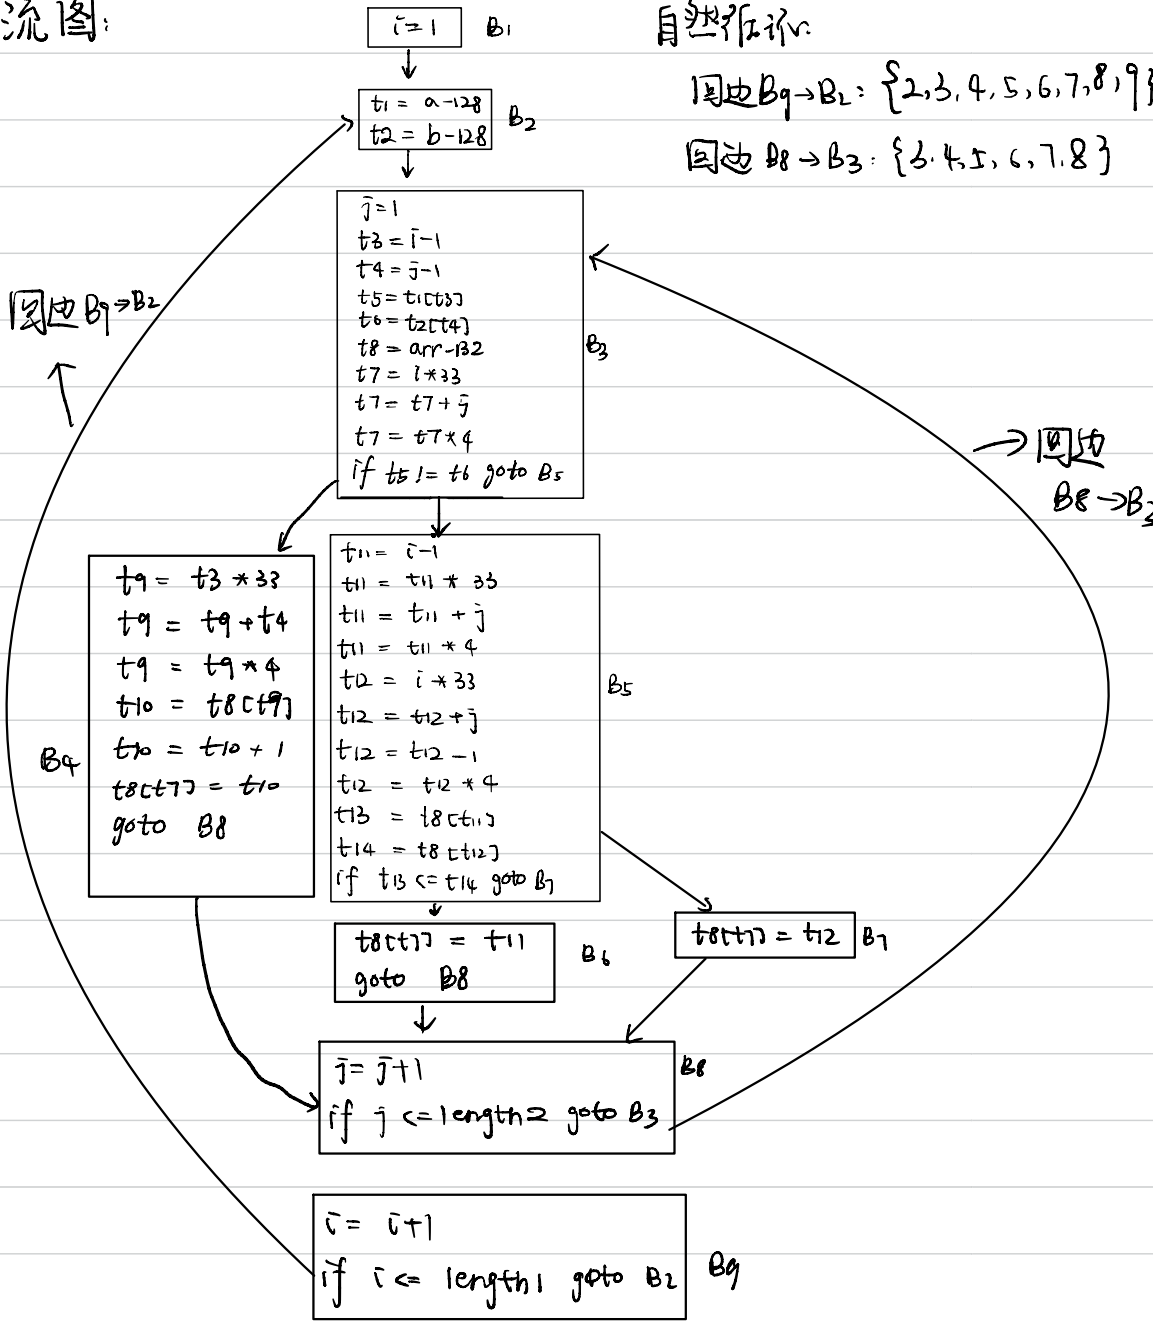 流图:
i=1 B1
t1 = a-128
t2 = b-128
B2
自然循环:
回边B9→B2: {2,3,4,5,6,7,8,9}
回边 B8→B3: {3.4,5,6,7.8}
回边B9→B2
j=1
t3 = i-1
t4 = j-1
t5 = t1[t3]
t6 = t2[t4]
t8 = arr-132
t7 = i*33
t7 = t7+j
t7 = t7*4
if t5 != t6 goto B5
B3
回边
B8→B3
t9 = t3 * 33
t9 = t9+t4
t9 = t9*4
t10 = t8[t9]
t10 = t10 + 1
t8[t7] = t10
goto B8
B4
t11 = i-1
t11 = t11 * 33
t11 = t11 + j
t11 = t11 * 4
t12 = i*33
t12 = t12+j
t12 = t12-1
t12 = t12 * 4
t13 = t8[t11]
t14 = t8[t12]
if t13 <= t14 goto B7
B5
t8[t7] = t11
goto B8
B6
t8[t7] = t12 B7
j = j+1
if j <= length2 goto B3
B8
i = i+1
if i <= length1 goto B2
B9